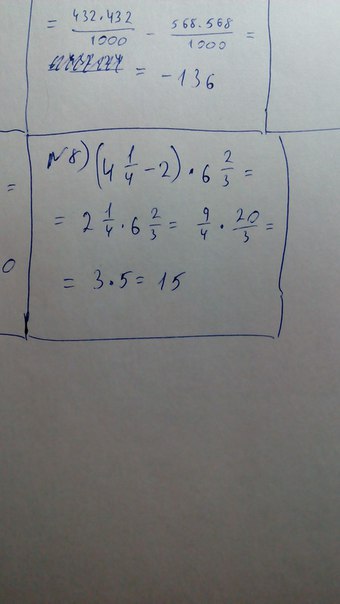 = 432.432/1000 - 568.568/1000 =
= -136
=
0
№8) (4 1/4 - 2) · 6 2/3 =
= 2 1/4 · 6 2/3 = 9/4 · 20/3 =
= 3 · 5 = 15